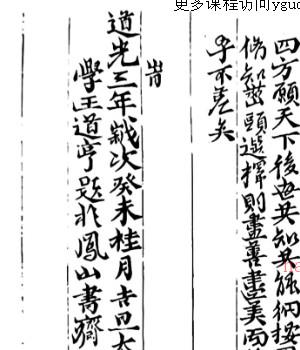 更多课程访问yguo
四方願天下後世共知其能納按
偹知茁頭選擇則盡善盡美而
乎不差矣
峕
道光三年歲次癸未桂月吉旦
學王道亨題於鳳山書齋